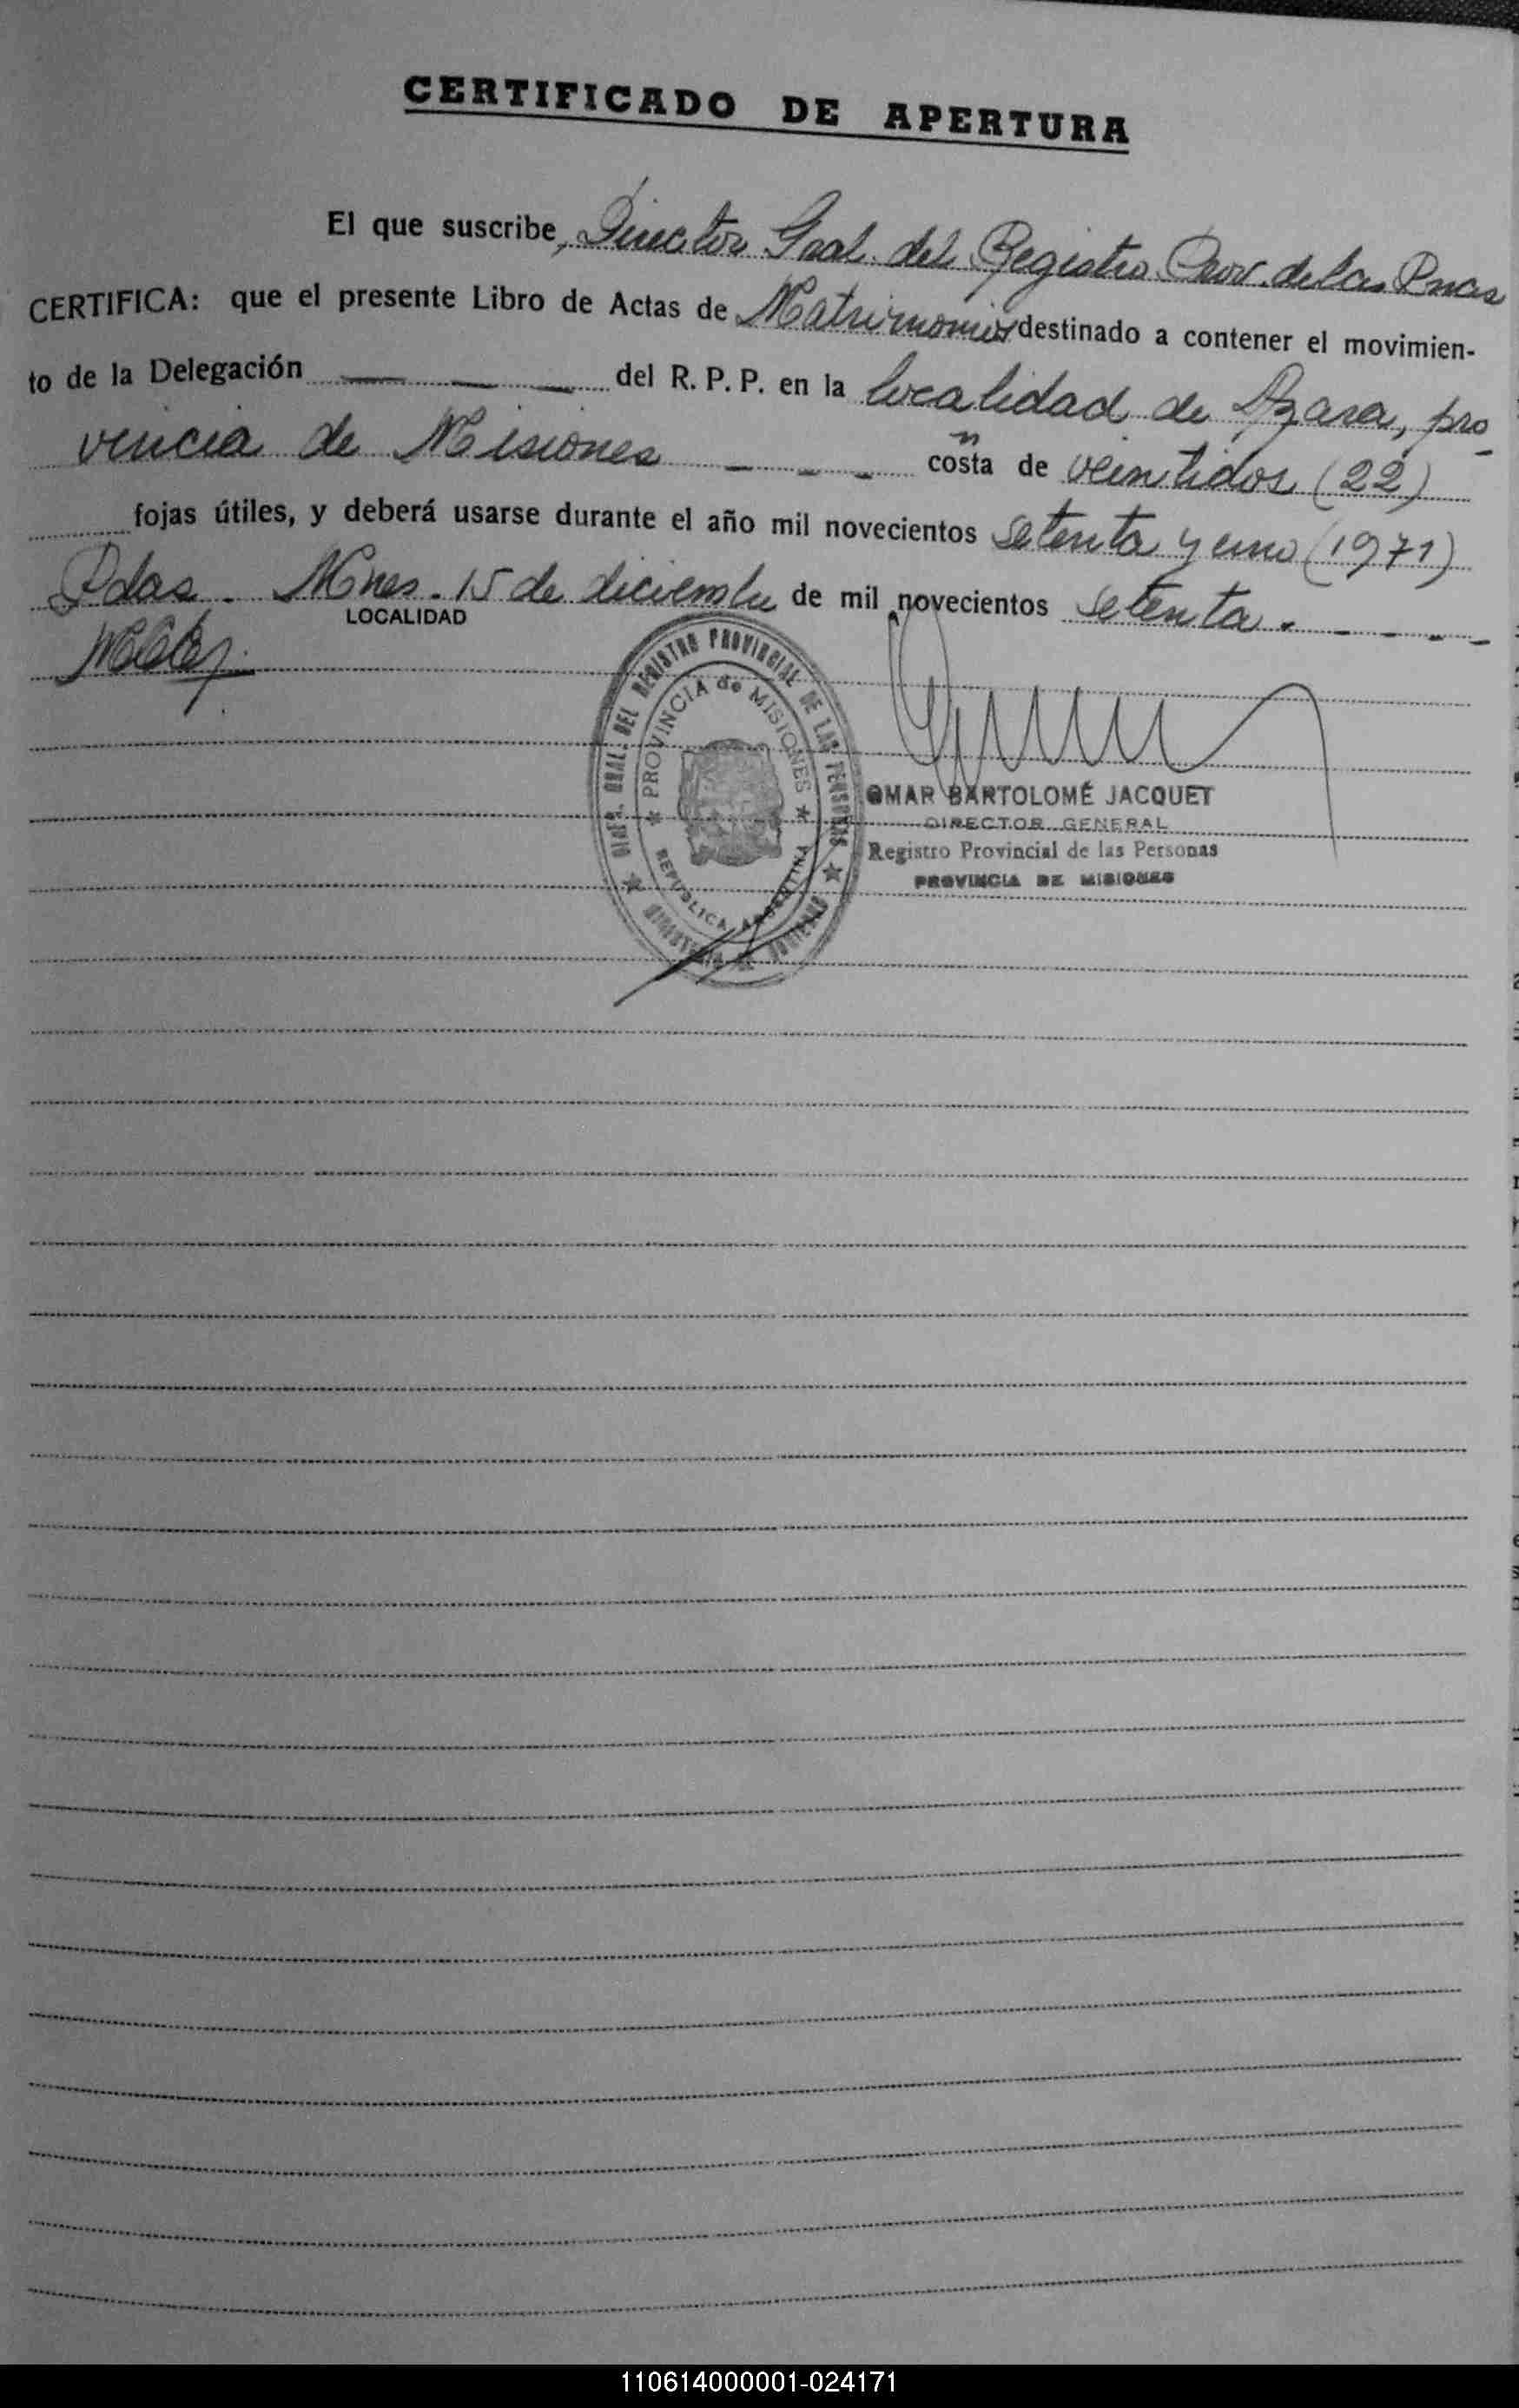 CERTIFICADO DE APERTURA
El que suscribe, Director Gral. del Registro Prov. de las Pnas
CERTIFICA: que el presente Libro de Actas de Matrimonios destinado a contener el movimien-
to de la Delegación — — — del R. P. P. en la localidad de Azara, pro-
vincia de Misiones — — — costa de veintidos (22)
fojas útiles, y deberá usarse durante el año mil novecientos setenta y uno (1971)
Pdas. Mnes. 15 de diciembre de mil novecientos setenta. - - - -
LOCALIDAD
DIREC. GRAL. DEL REGISTRO PROVINCIAL DE LAS PERSONAS
PROVINCIA de MISIONES
REPUBLICA ARGENTINA
OMAR BARTOLOMÉ JACQUET
DIRECTOR GENERAL
Registro Provincial de las Personas
PROVINCIA DE MISIONES
110614000001-024171